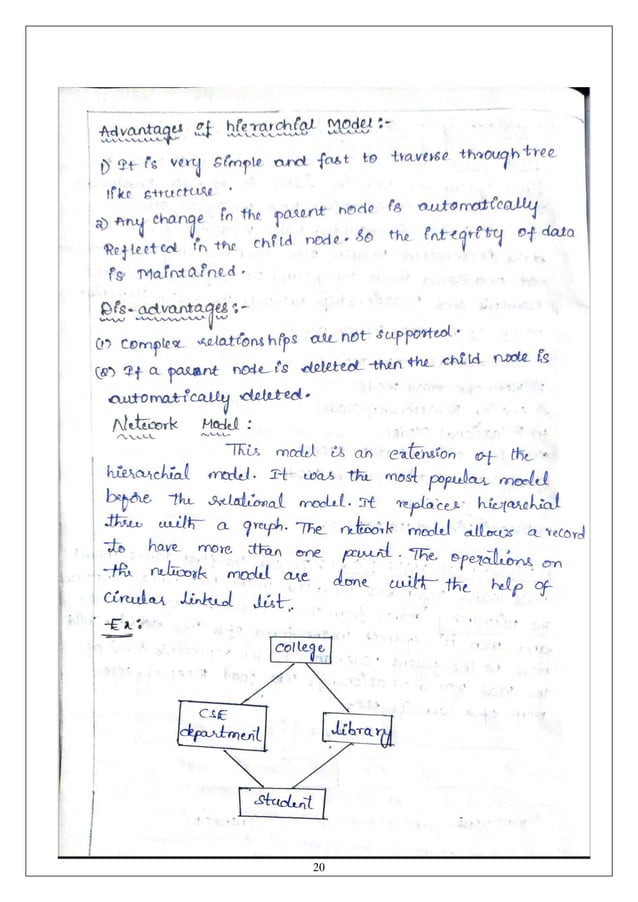 Advantages of hierarchial Model:-
1) It is very simple and fast to traverse through tree
like structure.
2) Any change in the parent node is automatically
Reflected in the child node. So the integrity of data
is Maintained.
Dis-advantages:-
(1) Complex relationships are not supported.
(2) If a parent node is deleted then the child node is
automatically deleted.
Network Model:
This model is an extension of the
hierarchial model. It was the most popular model
before the relational model. It replaces hierarchial
three with a graph. The network model allows a record
to have more than one parent. The operations on
the network model are done with the help of
circular linked list.
Ex:
College
CSE
department
library
student
20